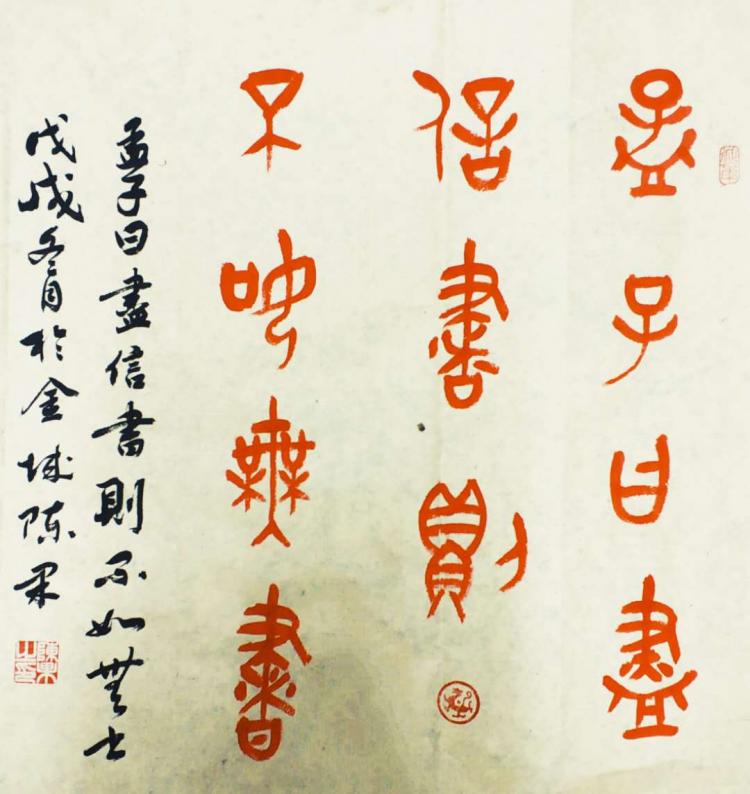 孟子曰盡
信書則
不如無書
孟子曰盡信書則不如無书
戊戌冬月於金城陈果
陳果之印